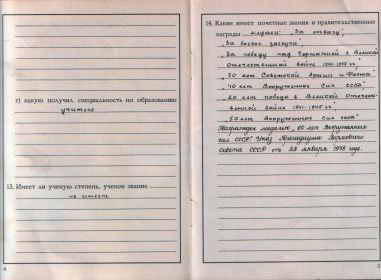 г) какую получил специальность по образованию
учителя
13. Имеет ли ученую степень, ученое звание
не имеет
4
14. Какие имеет почетные звания и правительственные
награды медали: „За отвагу",
„За боевые заслуги",
„За победу над Германией в Великой
Отечественной войне 1941-1945 гг."
„30 лет Советской Армии и Флота"
„40 лет Вооруженных Сил СССР"
„20 лет победы в Великой Отечест-
венной войне 1941-1945 гг."
„50 лет Вооруженных Сил СССР"
Награжден медалью „60 лет Вооруженных
сил СССР" Указ Президиума Верховного
Совета СССР от 28 января 1978 года.